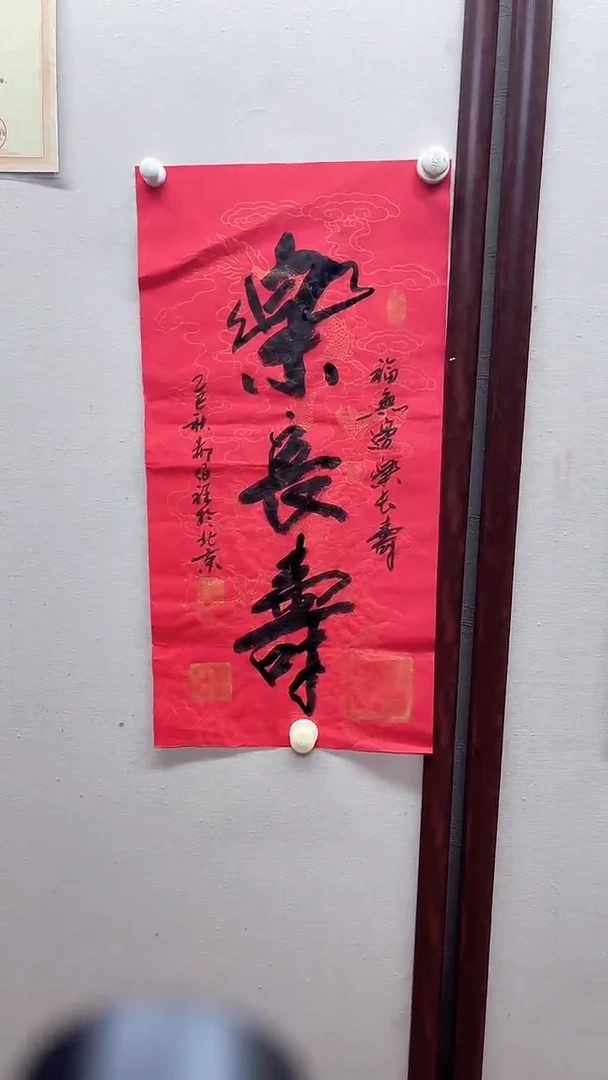 福無邊樂长壽
樂長壽
乙巳秋於北京